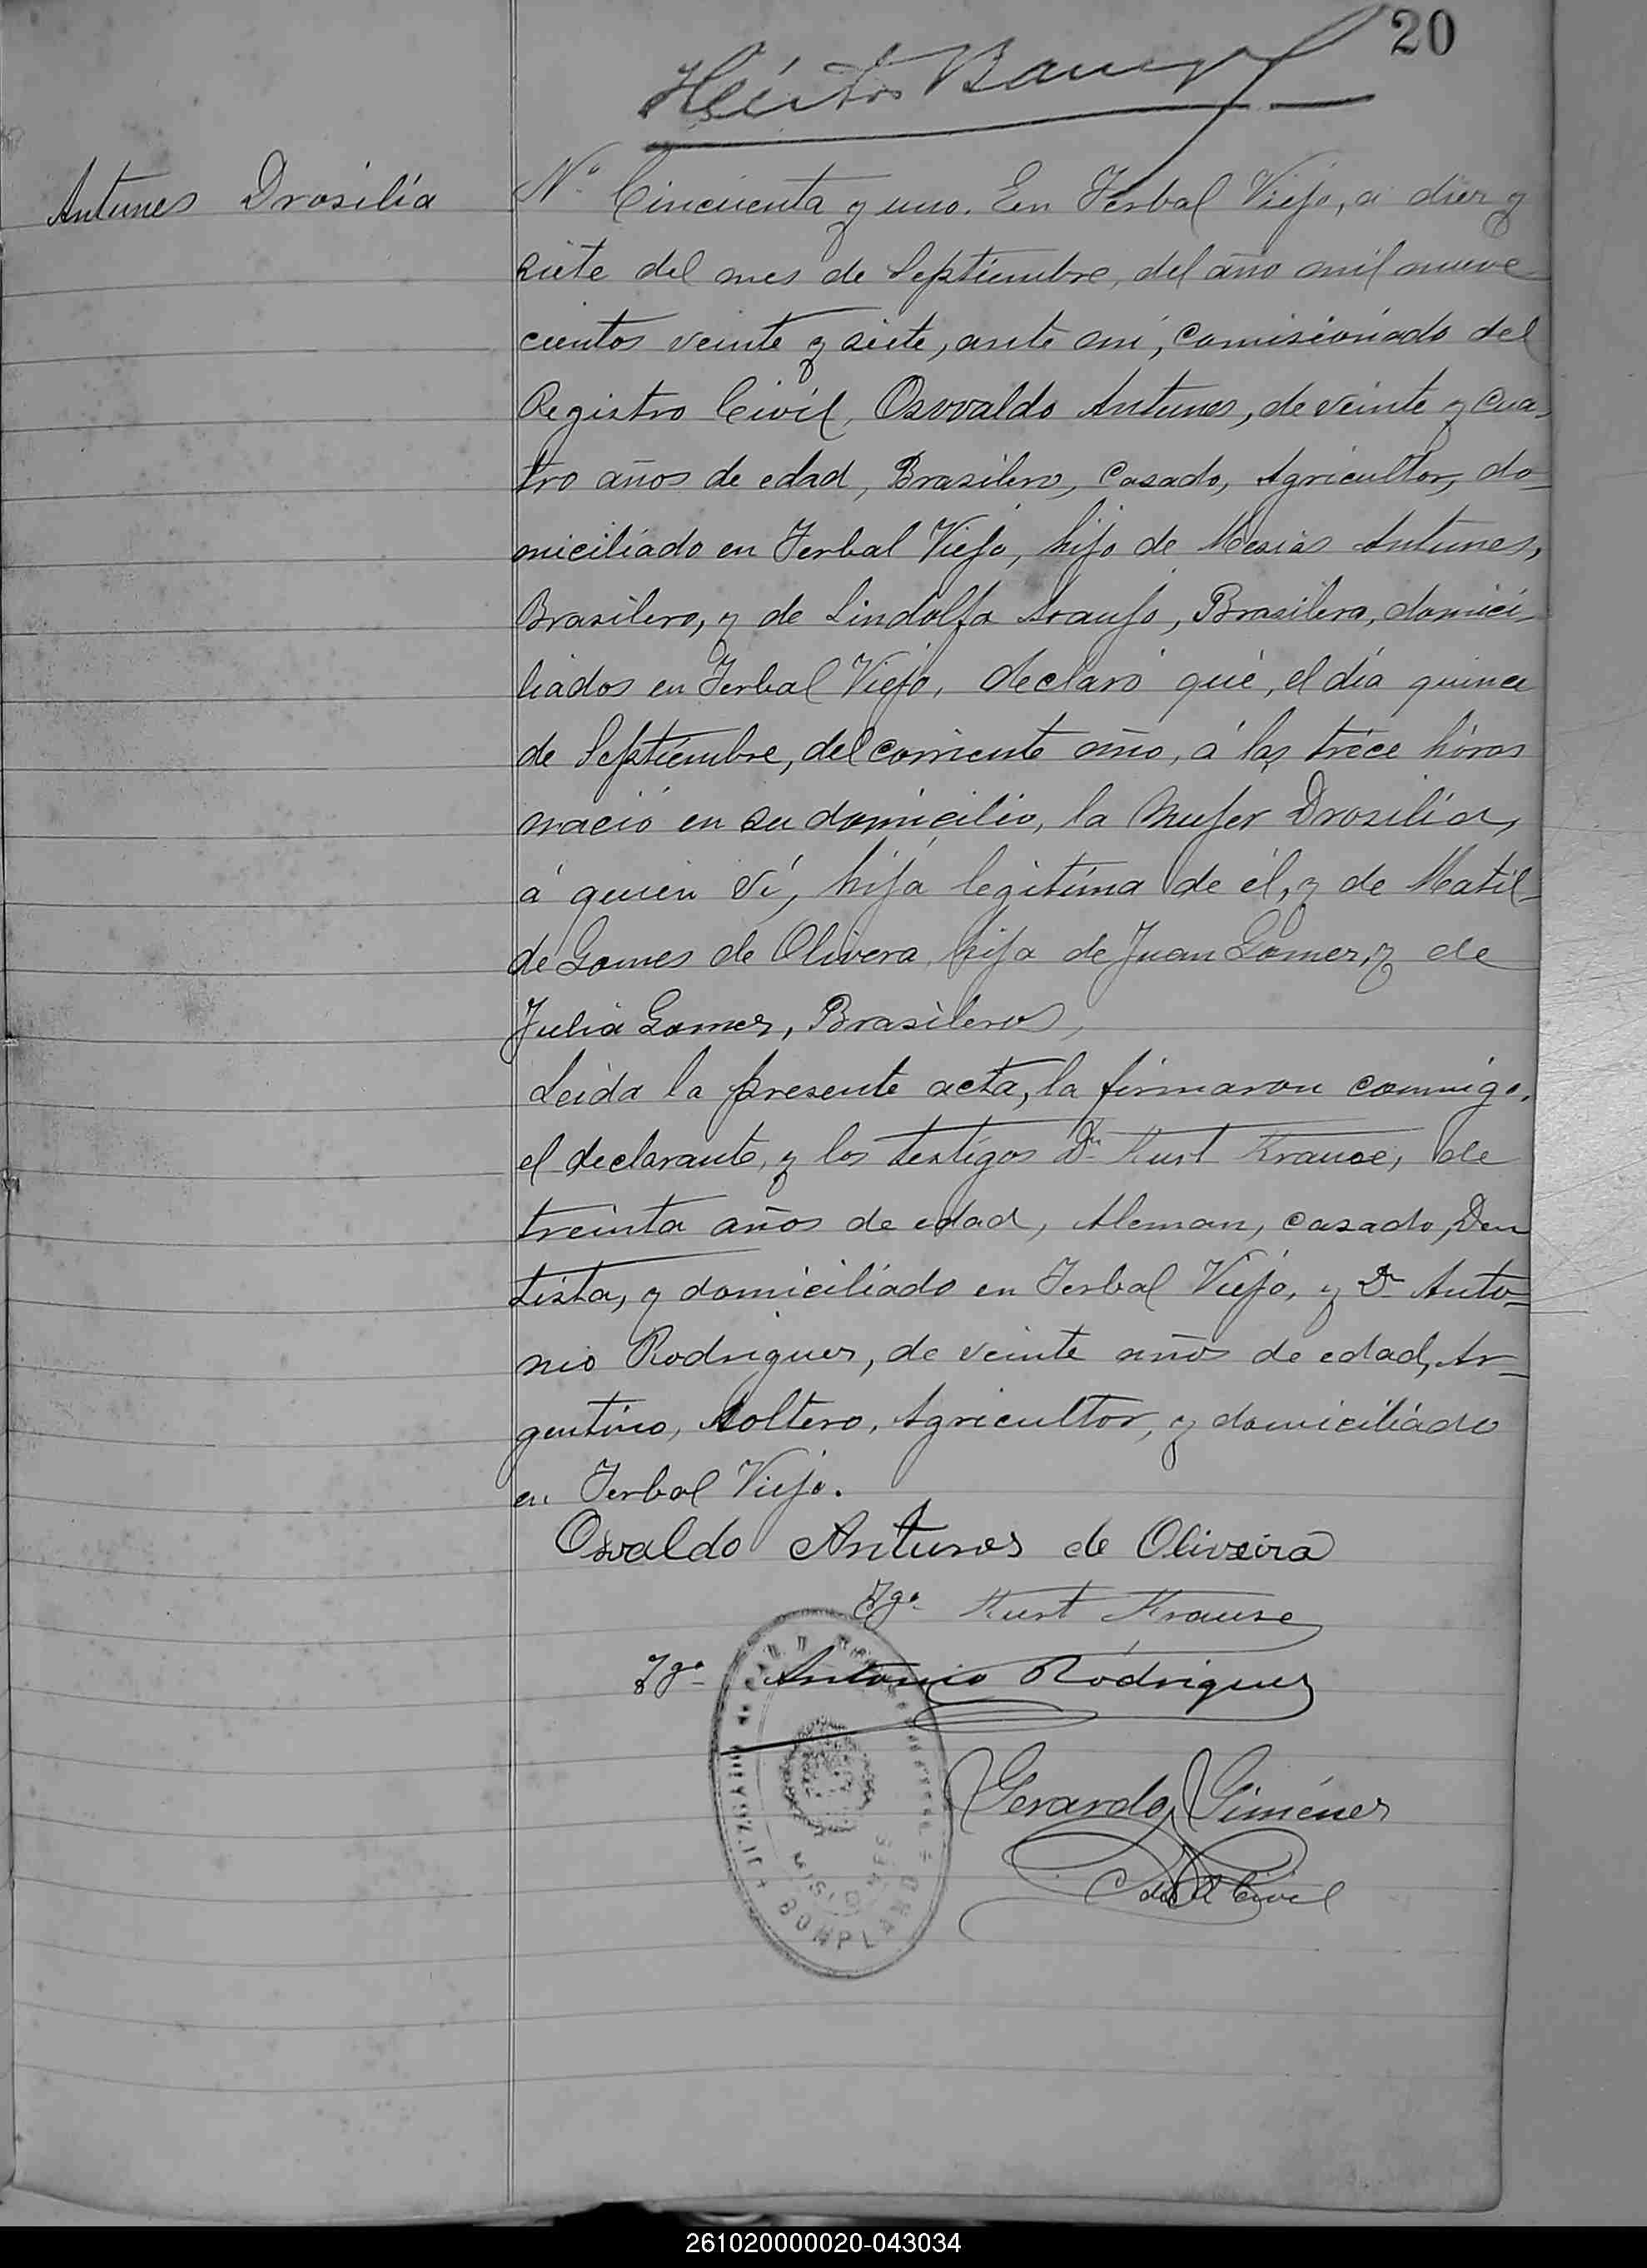 20
Antunes Drosilia
Nº Cincuenta y uno. En Yerbal Viejo, a diez y
siete del mes de Septiembre, del año mil nueve
cientos veinte y siete, ante mi, comisionado del
Registro Civil, Osvvaldo Antunes, de veinte y cua-
tro años de edad, Brasilero, casado, Agricultor, do-
miciliado en Yerbal Viejo, hijo de Mesias Antunes,
Brasilero, y de Lindolfa Araujo, Brasilera, domici-
liados en Yerbal Viejo, declaró que, el día quince
de Septiembre, del corriente año, á las trece horas
nació en su domicilio, la mujer Drosilia,
á quien ví, hija legitima de él, y de Matil-
de Gomes de Olivera hija de Juan Gomez, y de
Julia Gomez, Brasileros,
Leida la presente acta, la firmaron conmigo,
el declarante, y los testigos Dn Kurt Krause, de
treinta años de edad, Aleman, casado, Den
tista, y domiciliado en Yerbal Viejo, y Dn Anto-
nio Rodriguez, de veinte años de edad, Ar-
gentino, soltero, Agricultor, y domiciliado
en Yerbal Viejo.
Osvaldo Antunes de Oliveira
Tgo Kurt Krause
Tgo Antonio Rodriguez
Gerardo Giménez
del R Civil
BONPLAND
261020000020-043034